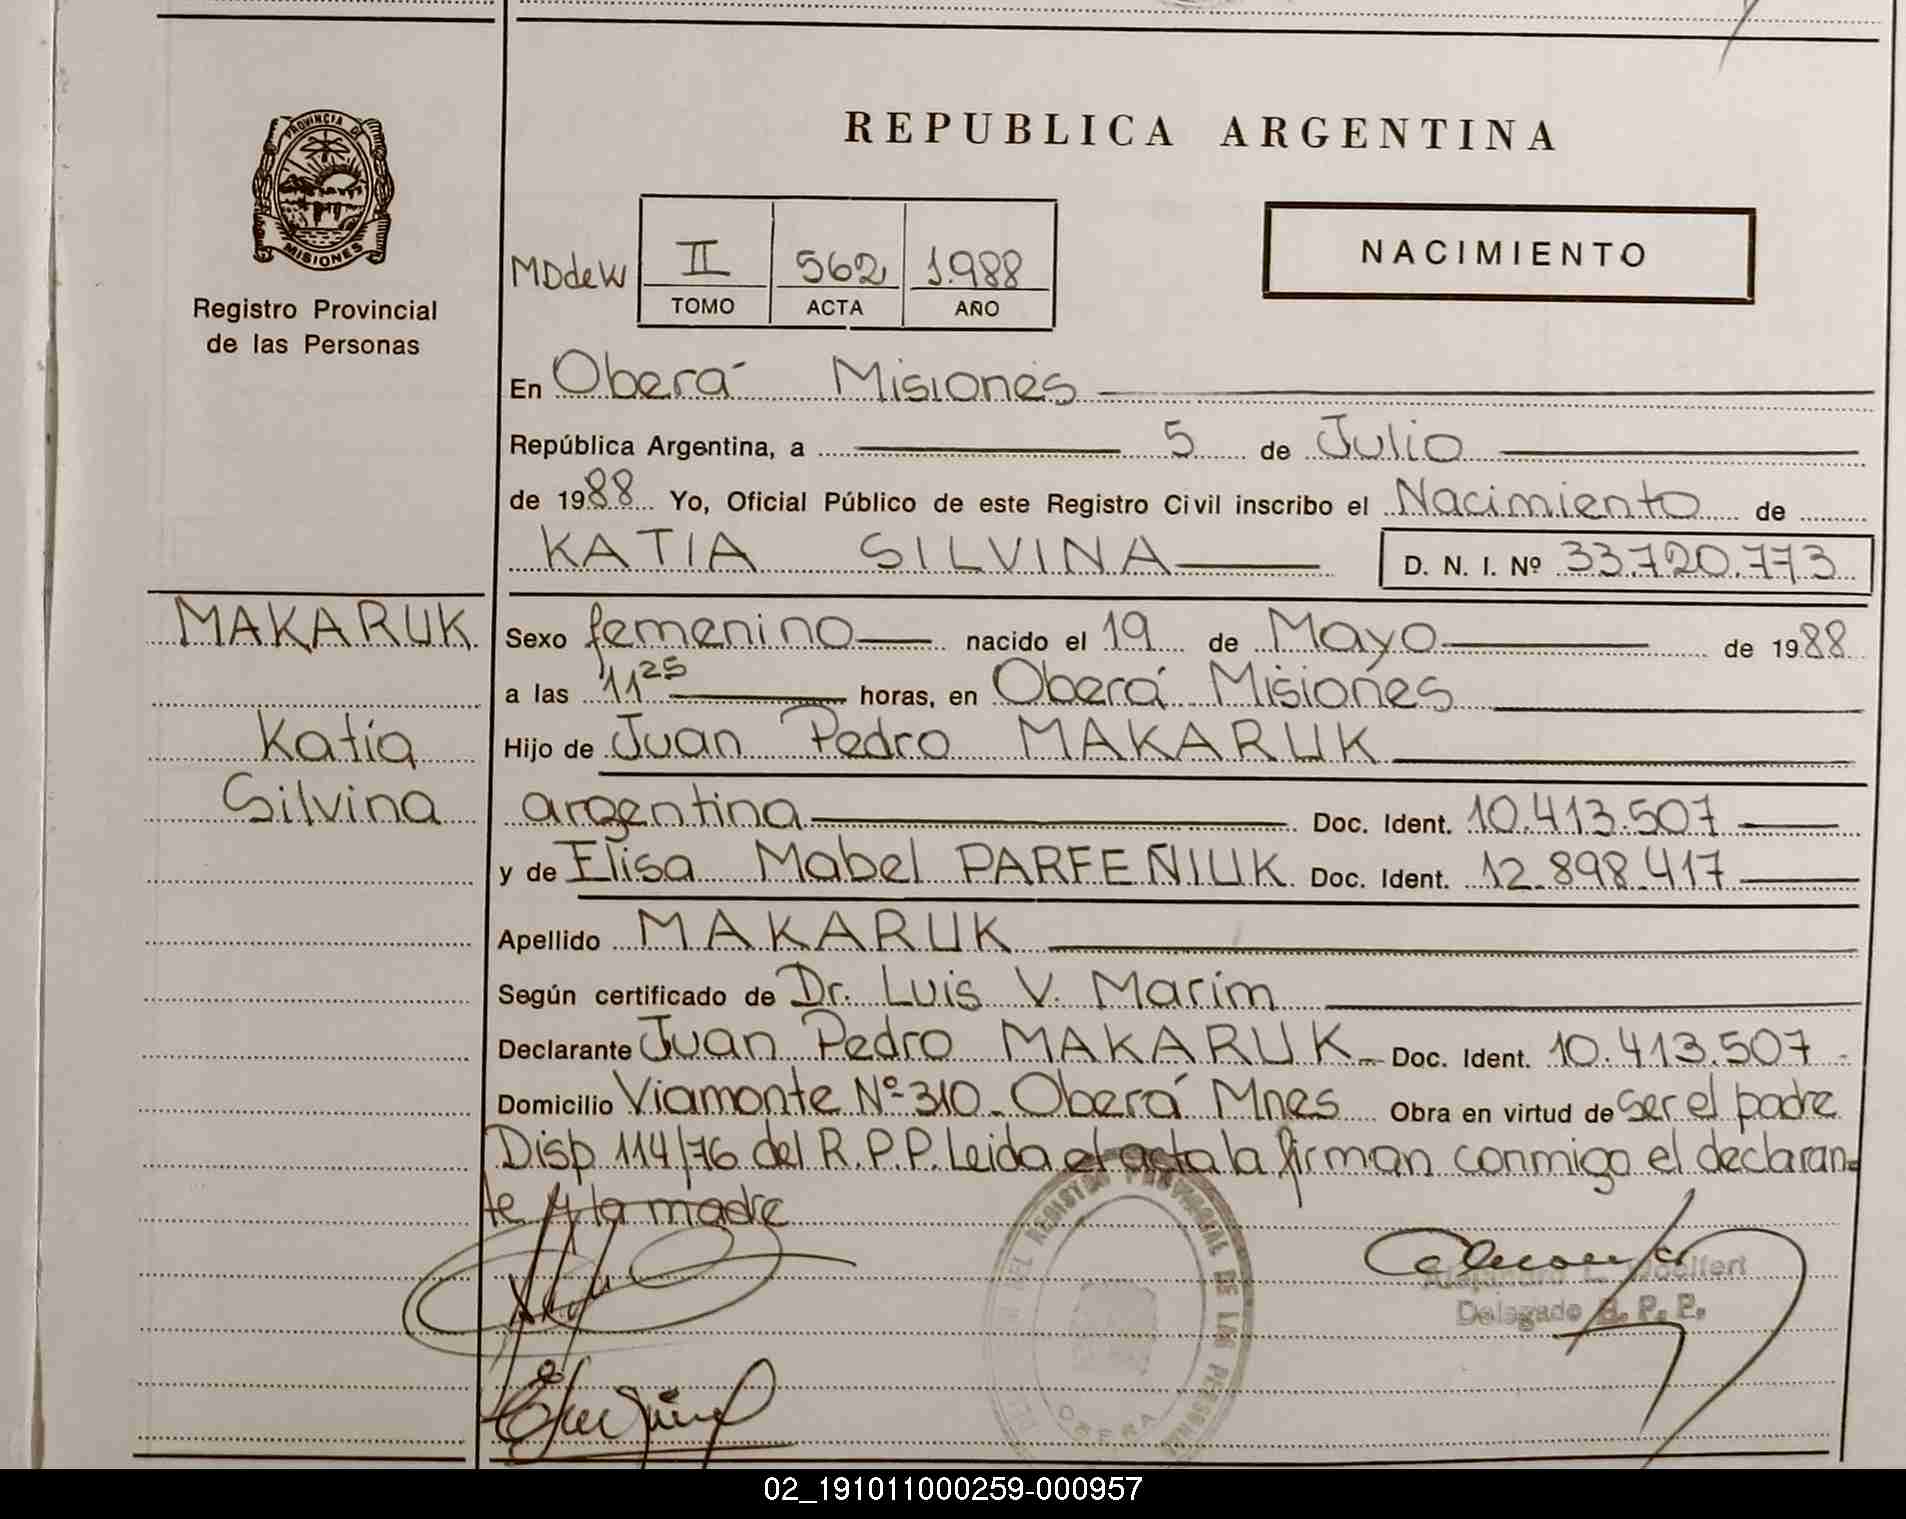 PROVINCIA DE
MISIONES
Registro Provincial
de las Personas
REPUBLICA ARGENTINA
NACIMIENTO
MDdeW
II 562 1.988
TOMO ACTA AÑO
En Oberá Misiones
República Argentina, a 5 de Julio
de 1988 Yo, Oficial Público de este Registro Civil inscribo el Nacimiento de
KATIA SILVINA D. N. I. Nº 33.720.773
MAKARUK
Katia
Silvina
Sexo femenino nacido el 19 de Mayo de 1988
a las 11 25 horas, en Oberá Misiones
Hijo de Juan Pedro MAKARUK
argentina Doc. Ident. 10.413.507
y de Elisa Mabel PARFEÑIUK Doc. Ident. 12.898.417
Apellido MAKARUK
Según certificado de Dr. Luis V. Marim
Declarante Juan Pedro MAKARUK Doc. Ident. 10.413.507
Domicilio Viamonte Nº 310 - Oberá Mnes Obra en virtud de ser el padre
Disp 114/76 del R.P.P. Leida el acta la firman conmigo el declaran-
te y la madre
DEL REGISTRO PROVINCIAL DE LAS PERSONAS
OBERA
Delegado R. P. P.
02_191011000259-000957